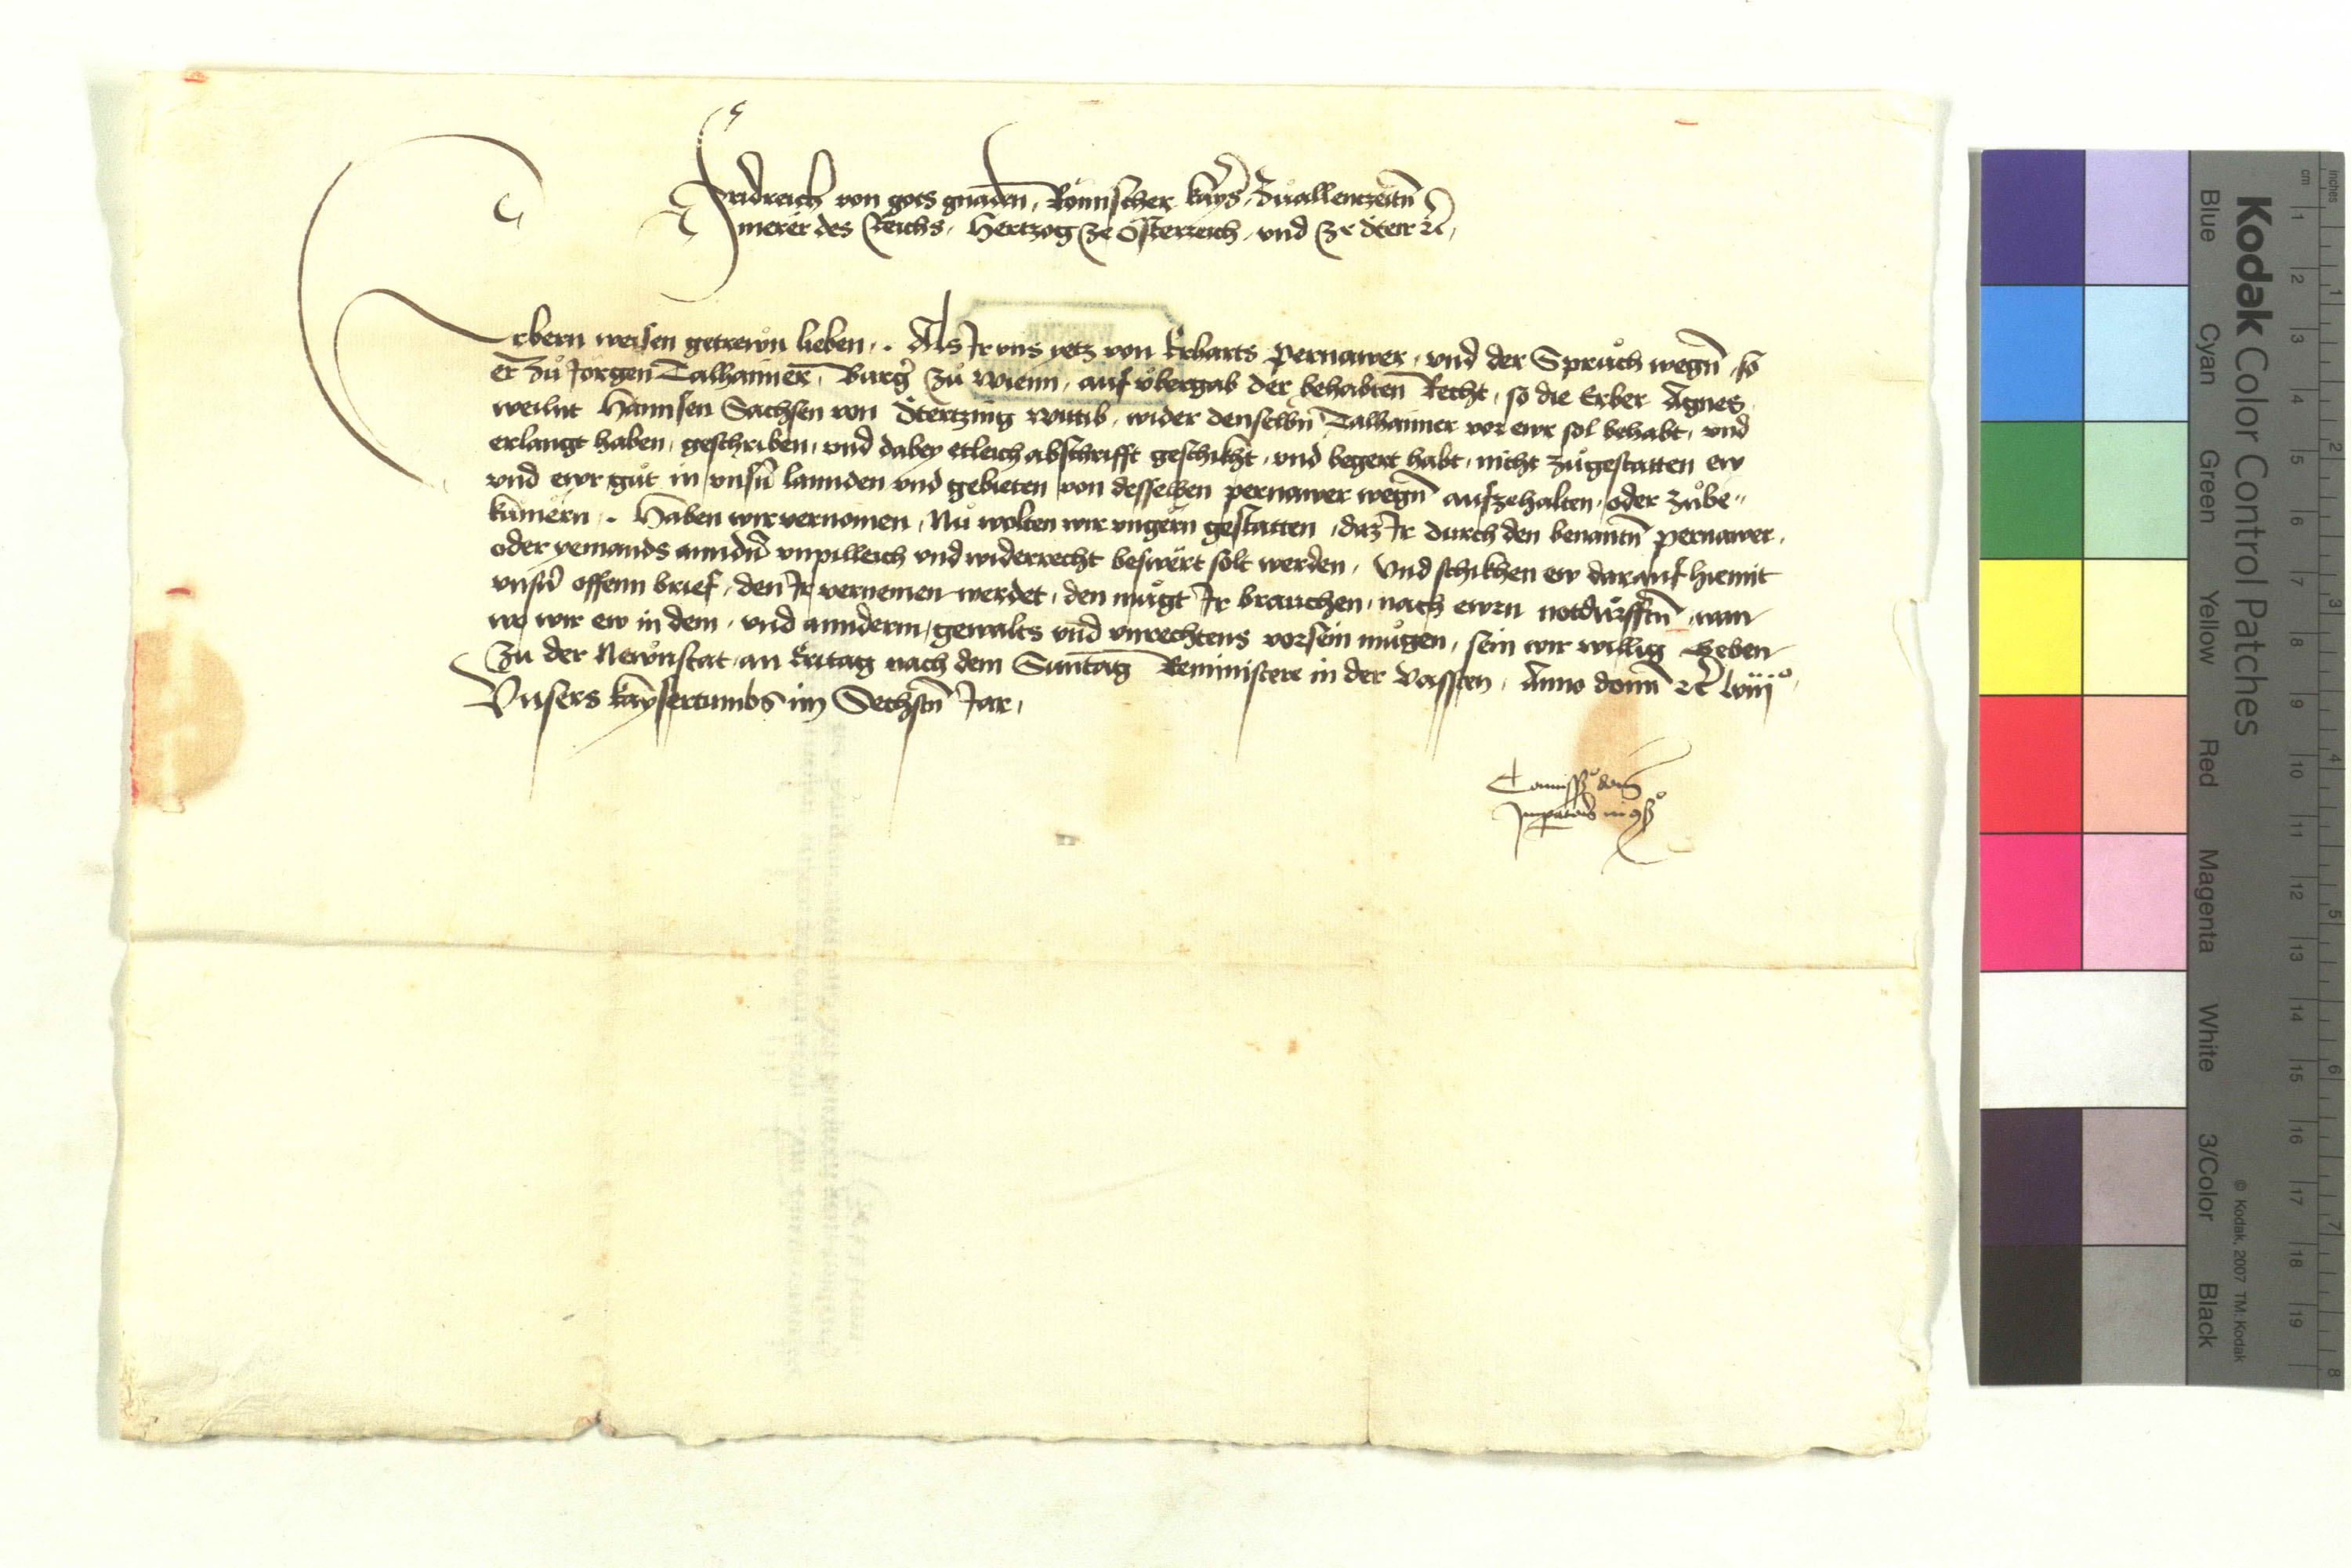 Fridreich von gots gnaden, Römischer kayser, Zuallenntzeitn
merer des Reichs, Hertzog ze Österreich, und ze Steir etc,
Erbern weisen getrewn lieben. Als Ir uns yetz von Erharts Pernawer, und der Sprüch wegn, so
er zu Jörgen Talhaimer, Burger zu Wienn, auf übergab der behabten Recht, so die Erber Agnes
weilnt Hannsen Sachsen von Stertzing wittib, wider denselbn Talhaimer vor ewr sol behabt, und
erlangt haben, geschriben, und dabey etleich abschrifft geschikht, und begert habt, nicht zugestatten ew
und ewr gut in unsern lannden und gebieten von desselben pernawer wegn aufzehalten, oder zube-
kümern. Haben wir vernomen, Nu wolten wir ungern gestatten, daz Ir durch den benantn pernawer,
oder yemands anndern unpilleich und widerrecht beswert solt werden, Und schikhen ew darauf hiemit
unsern offenn brief, den Ir vernemen werdet, den mugt Ir brauchen, nach ewrn notdurfftn, wan
wo wir ew in dem, und annderm, gewalts und unrechtens vorsein mugen, sein wir willig Geben
Zu der Newnstat an Eritag nach dem Suntag Reminiscere in der Vassten, Anno domini etc lviijo,
Unsers kaysertumbs im Sechstn Jar,
Commissio domini
Imperatoris in consilio
Kodak Color Control Patches
Blue Cyan Green Yellow Red Magenta White 3/Color Black
© Kodak, 2007 TM: Kodak
inches 1 2 3 4 5 6 7 8
cm 1 2 3 4 5 6 7 8 9 10 11 12 13 14 15 16 17 18 19